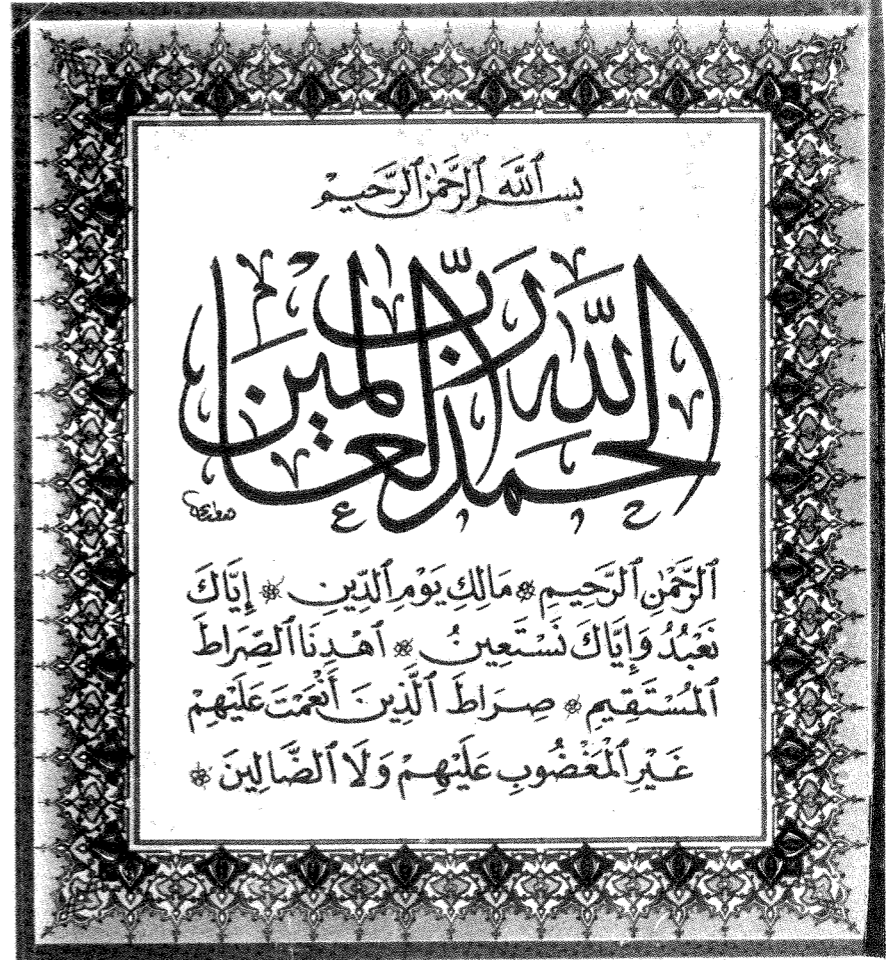 بِسْمِ ٱللَّهِ ٱلرَّحْمَٰنِ ٱلرَّحِيمْ
الحَمدُ لله رَبّ العَالمين
ٱلرَّحْمَٰنِ ٱلرَّحِيمِ مَالِكِ يَوْمِ ٱلدِّينِ إِيَّاكَ
نَعْبُدُ وَإِيَّاكَ نَسْتَعِينُ ٱهْدِنَا ٱلصِّرَاطَ
ٱلمُسْتَقِيمِ صِرَاطَ ٱلَّذِينَ أَنْعَمْتَ عَلَيْهِمْ
غَيْرِ ٱلْمَغْضُوبِ عَلَيْهِمْ وَلَا ٱلضَّالِينَ